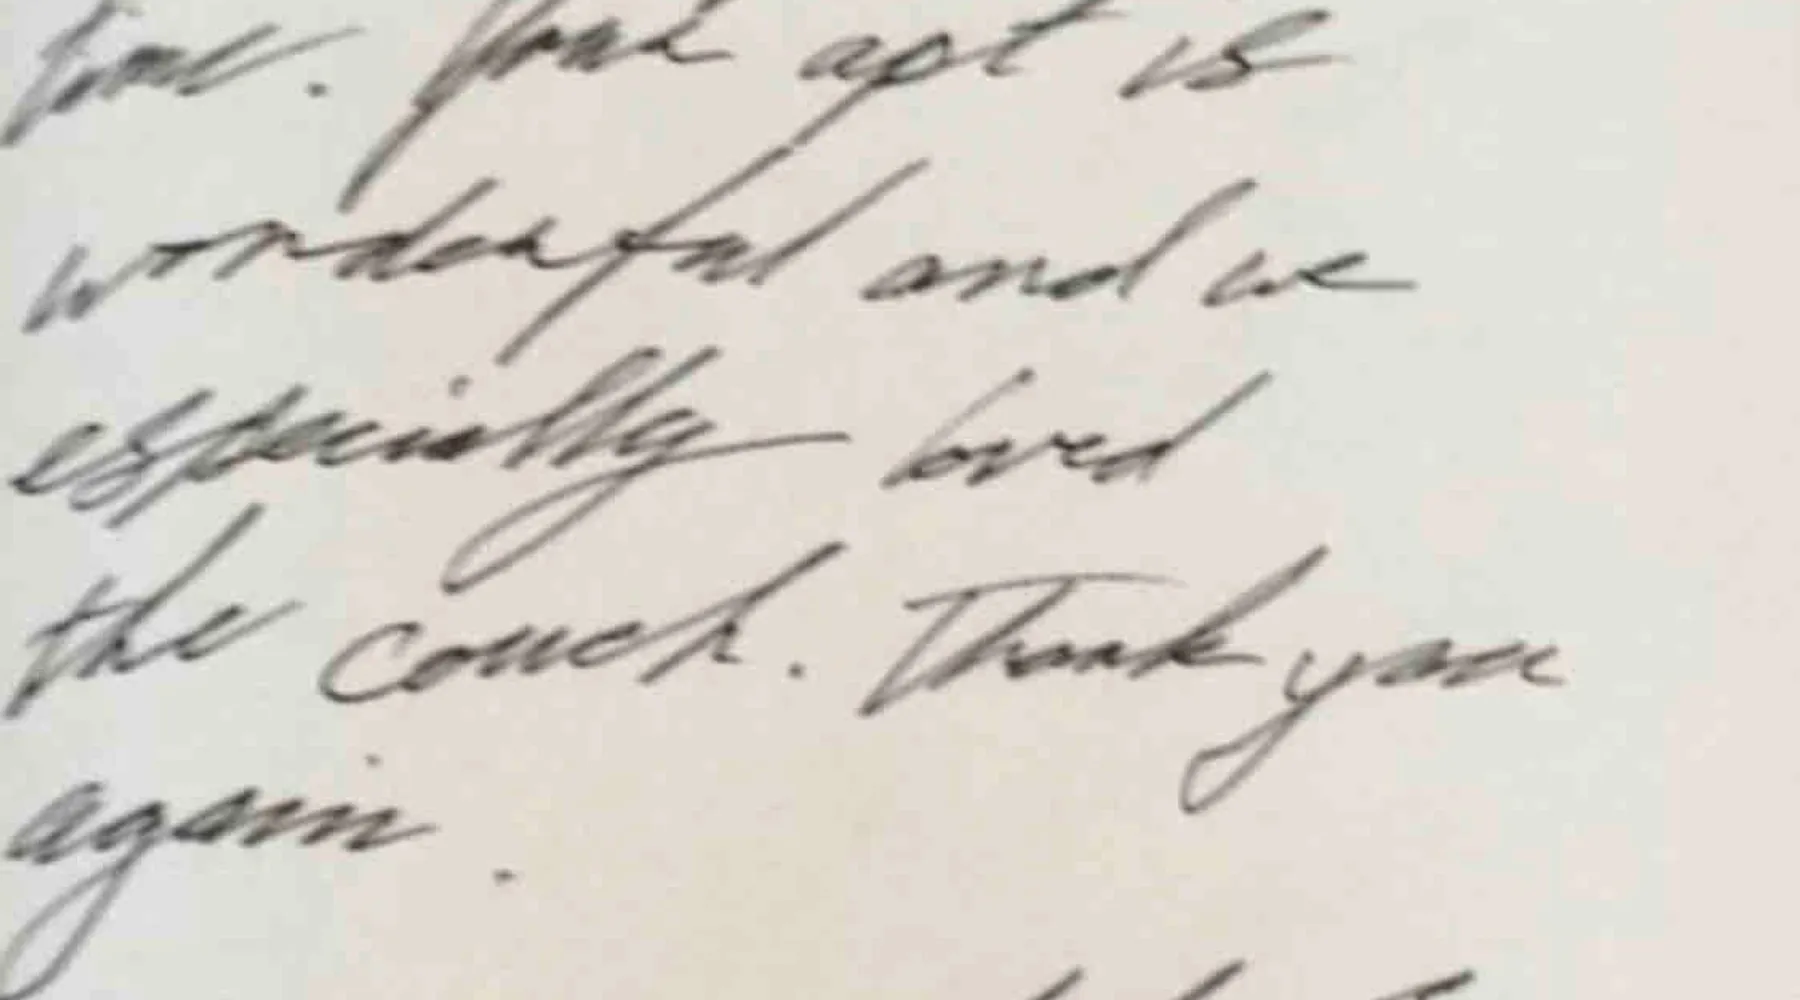 time. Your apt is
wonderful and we
especially loved
the couch. Thank you
again.